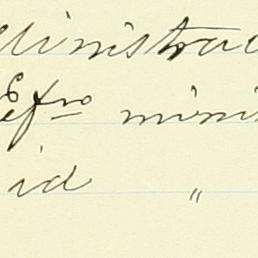 Ministra
Efro mini
id "